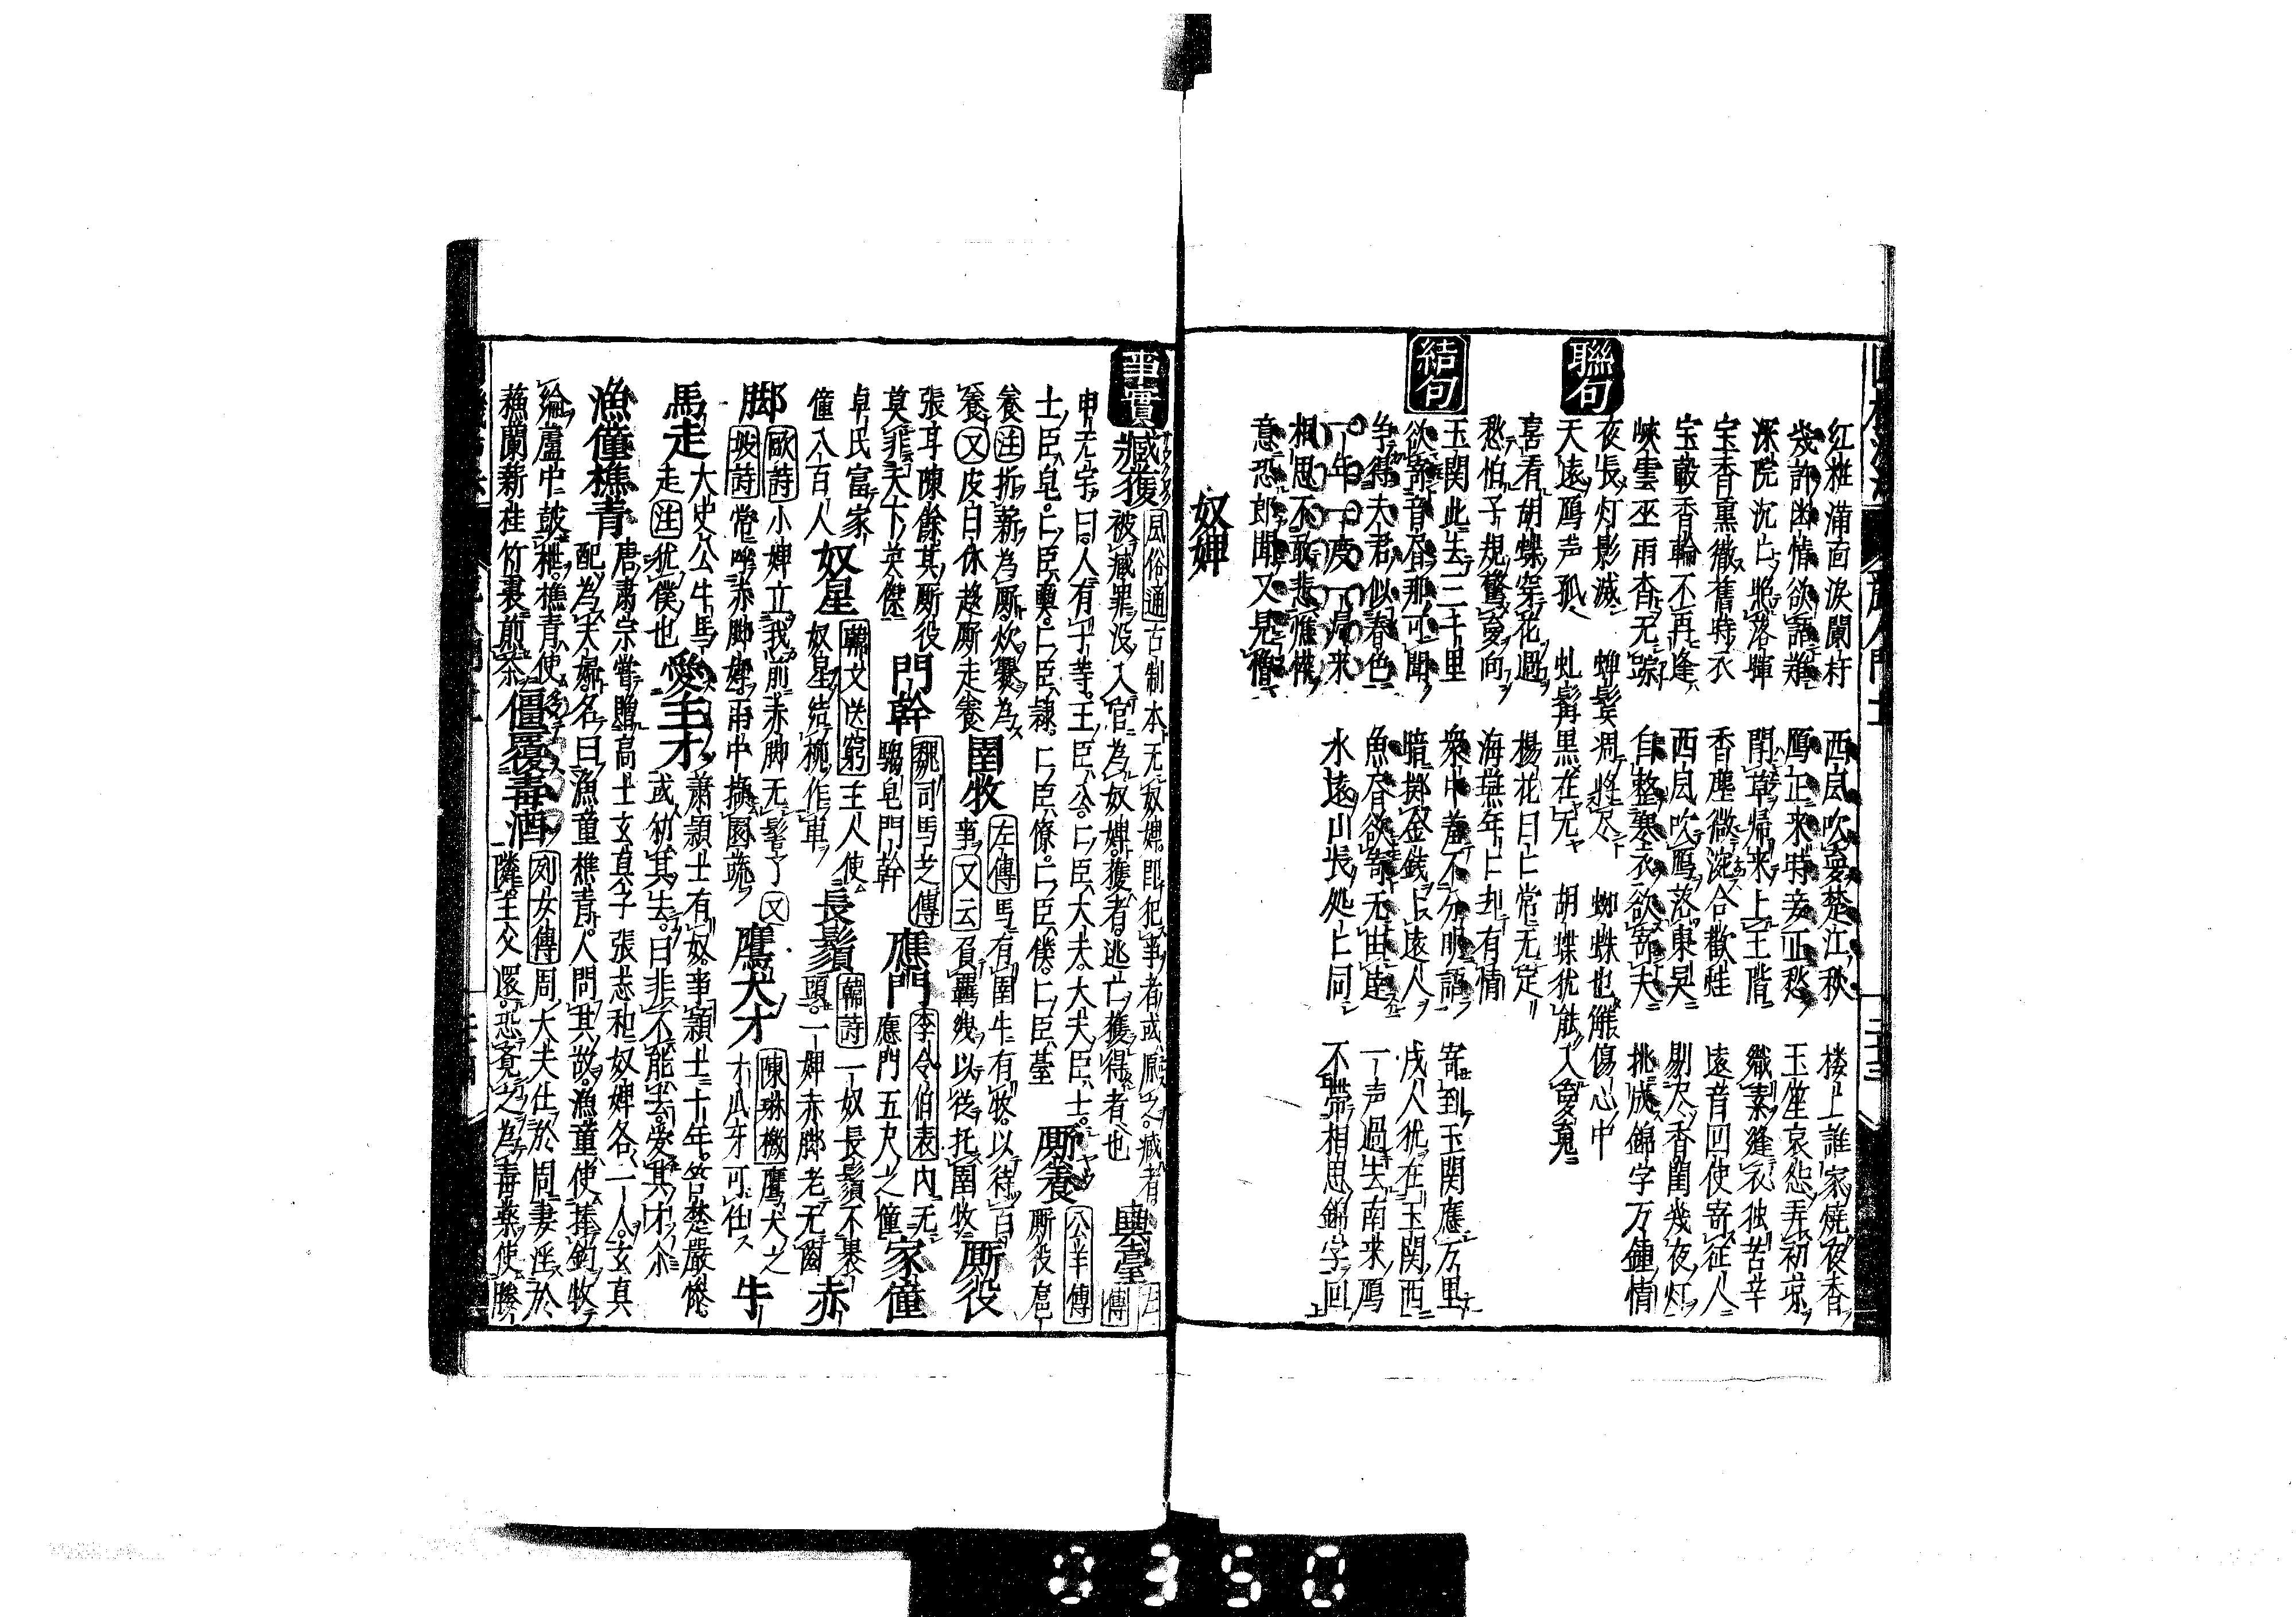 紅粧満面淚闌干　西風吹妾楚江秋　楼上誰家燒夜香
幾許幽情欲語難　鴈正来時妾正愁　玉笙哀怨弄初凉
深院沉〻晩落暉　閒草帰来上玉階　織素縫衣独苦辛
宝香熏徹舊時衣　香塵微淀合歓鞋　遠音回使寄征人
宝轂香輪不再逢　西風吹鴈落東呉　剔尽香閨幾夜灯
峽雲巫雨杳无踪　自整寒衣欲寄夫　挑成錦字万鍾情
聯句
夜長灯影滅　蟬鬂凋將尽　蜘蛛也解傷心中
天遠鴈声孤　虬髯黒在无　胡蝶犹能入夢寛
喜看胡蝶穿花過　楊花日〻常无定
愁怕子規驚夏向　海燕年〻却有情
結句
玉関此去三千里　衆中羞不分明語　寄到玉関應万里
欲寄音書那可聞　暗擲金錢卜遠人　戍人犹在玉関西
争得夫君似春色　魚書欲寄无由達　一声過去南来鴈
一年一度一帰来　水遠山長処〻同　不帯相思錦字回
相思不敢悲憔悴
意恐郎聞又見憎
奴婢
事實
臧獲 風俗通 古制本无奴婢即犯事者或原之臧者
被臧罪没入官為奴婢獲者逃亡獲得者也　輿臺 左傳
申无宇曰人有十等王臣公〻臣大夫大夫臣士
士臣皂〻臣輿〻臣隷〻臣僚〻臣僕〻臣臺　厮養 公羊傳 厮役扈
養 注 折薪為厮炊爨為
養 又 皮日休趍厮走養　圉牧 左傳 馬有圉牛有牧以待百
事 又云 負羈絏以從托圉牧　厮役
張耳陳餘其厮役
莫非天下英傑　門幹 魏司馬芝傳
驺皂門幹　應門 李令伯表 内无
應門五尺之僮　家僮
卓氏富家
僮八百人　奴星 韓文送窮 主人使
奴星結柳作車　長鬚 韓詩 一奴長鬚不裹
頭一婢赤脚老无齒　赤
脚 歐詩 小婢立我前赤脚无髻丫 又
坡詩 常呼赤脚婢雨中擷園蔬　鷹犬才 陳琳檄 鷹犬之
才爪牙可仕　牛
馬走 大史公牛馬
走 注 犹僕也　愛主才 蕭穎士有奴事穎士十年笞楚嚴慘
或勧其去曰非不能去愛其才尒
漁僮樵青 唐肅宗嘗賜高士玄真子張志和奴婢各一人玄真
配為夫婦名曰漁童樵青人問其故漁童使捧釣牧
綸蘆中鼓枻樵青使
蘇蘭薪桂竹裏煎茶　僵覆毒酒 列女傳 周大夫仕於周妻淫於
隣主父還恐覚之為毒薬使媵
0350